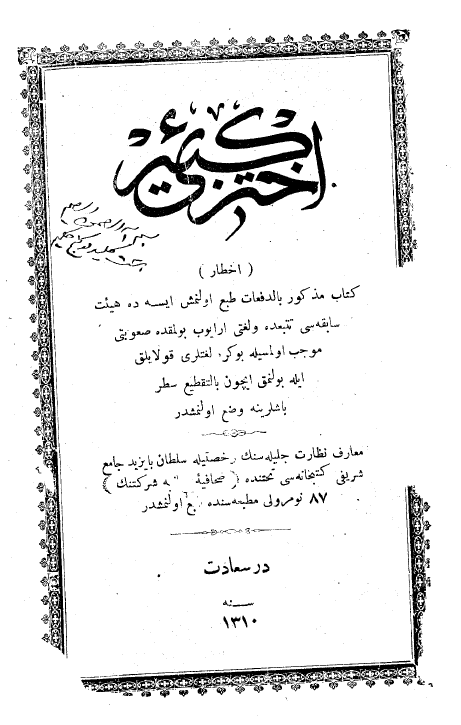 اخترئ كبير
( اخطار )
كتاب مذكور بالدفعات طبع اولنمش ايسه ده هيئت
سابقه سى تتبعده ولغتى ارايوب بولمقده صعوبتى
موجب اولمسيله بوكره لغتلرى قولايلق
ايله بولنمق ايچون بالتقطيع سطر
باشلرينه وضع اولنمشدر
معارف نظارت جليله سنك رخصتيله سلطان بايزيد جامع
شريفى كتبخانه سى تحتنده ( صحافيۀ شركتنك )
٨٧ نومرولى مطبعه سنده اولنمشدر
در سعادت
سنه
١٣١٠